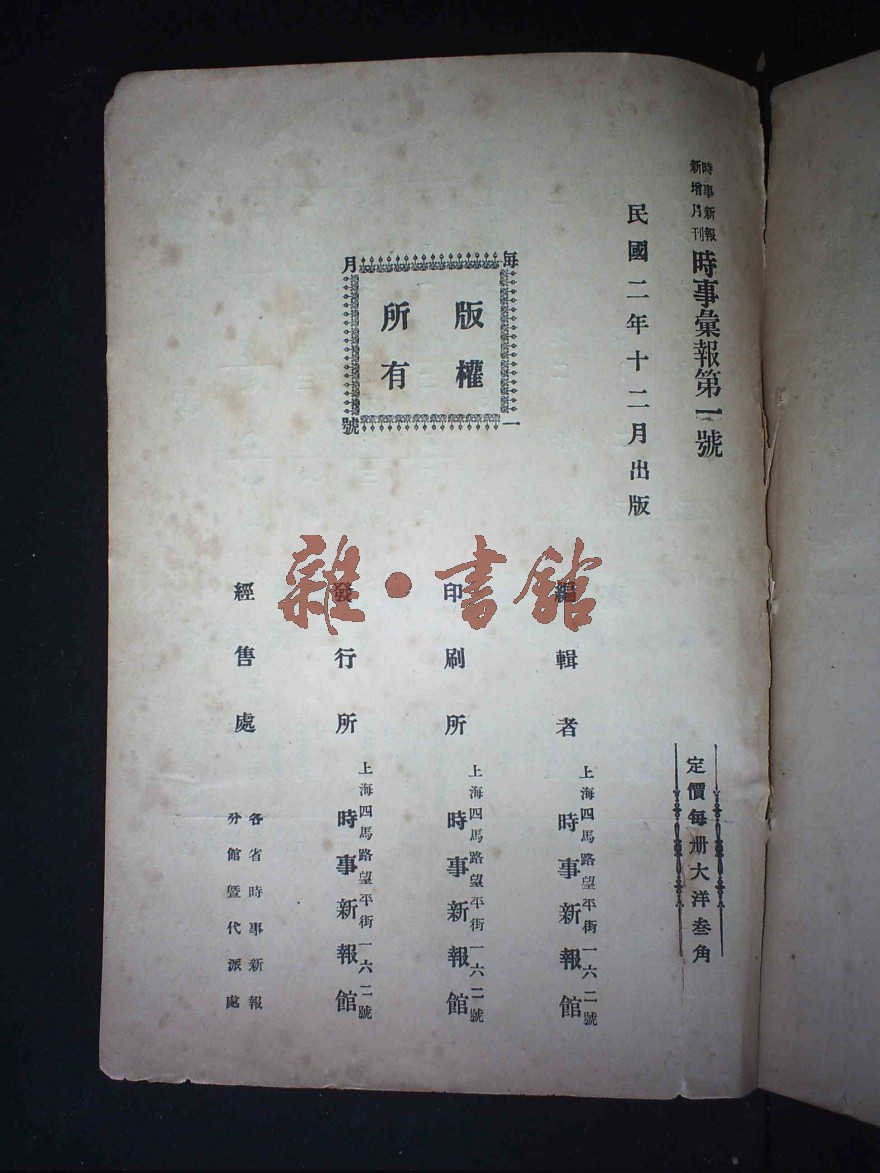 時事新報
新增月刊
時事彙報第一號
定價每册大洋叁角
民國二年十二月出版
每月一號
版權
所有
編輯者
上海四馬路望平街一六二號
時事新報館
印刷所
上海四馬路望平街一六二號
時事新報館
發行所
上海四馬路望平街一六二號
時事新報館
經售處
各省時事新報
分館暨代派處
雜·書館